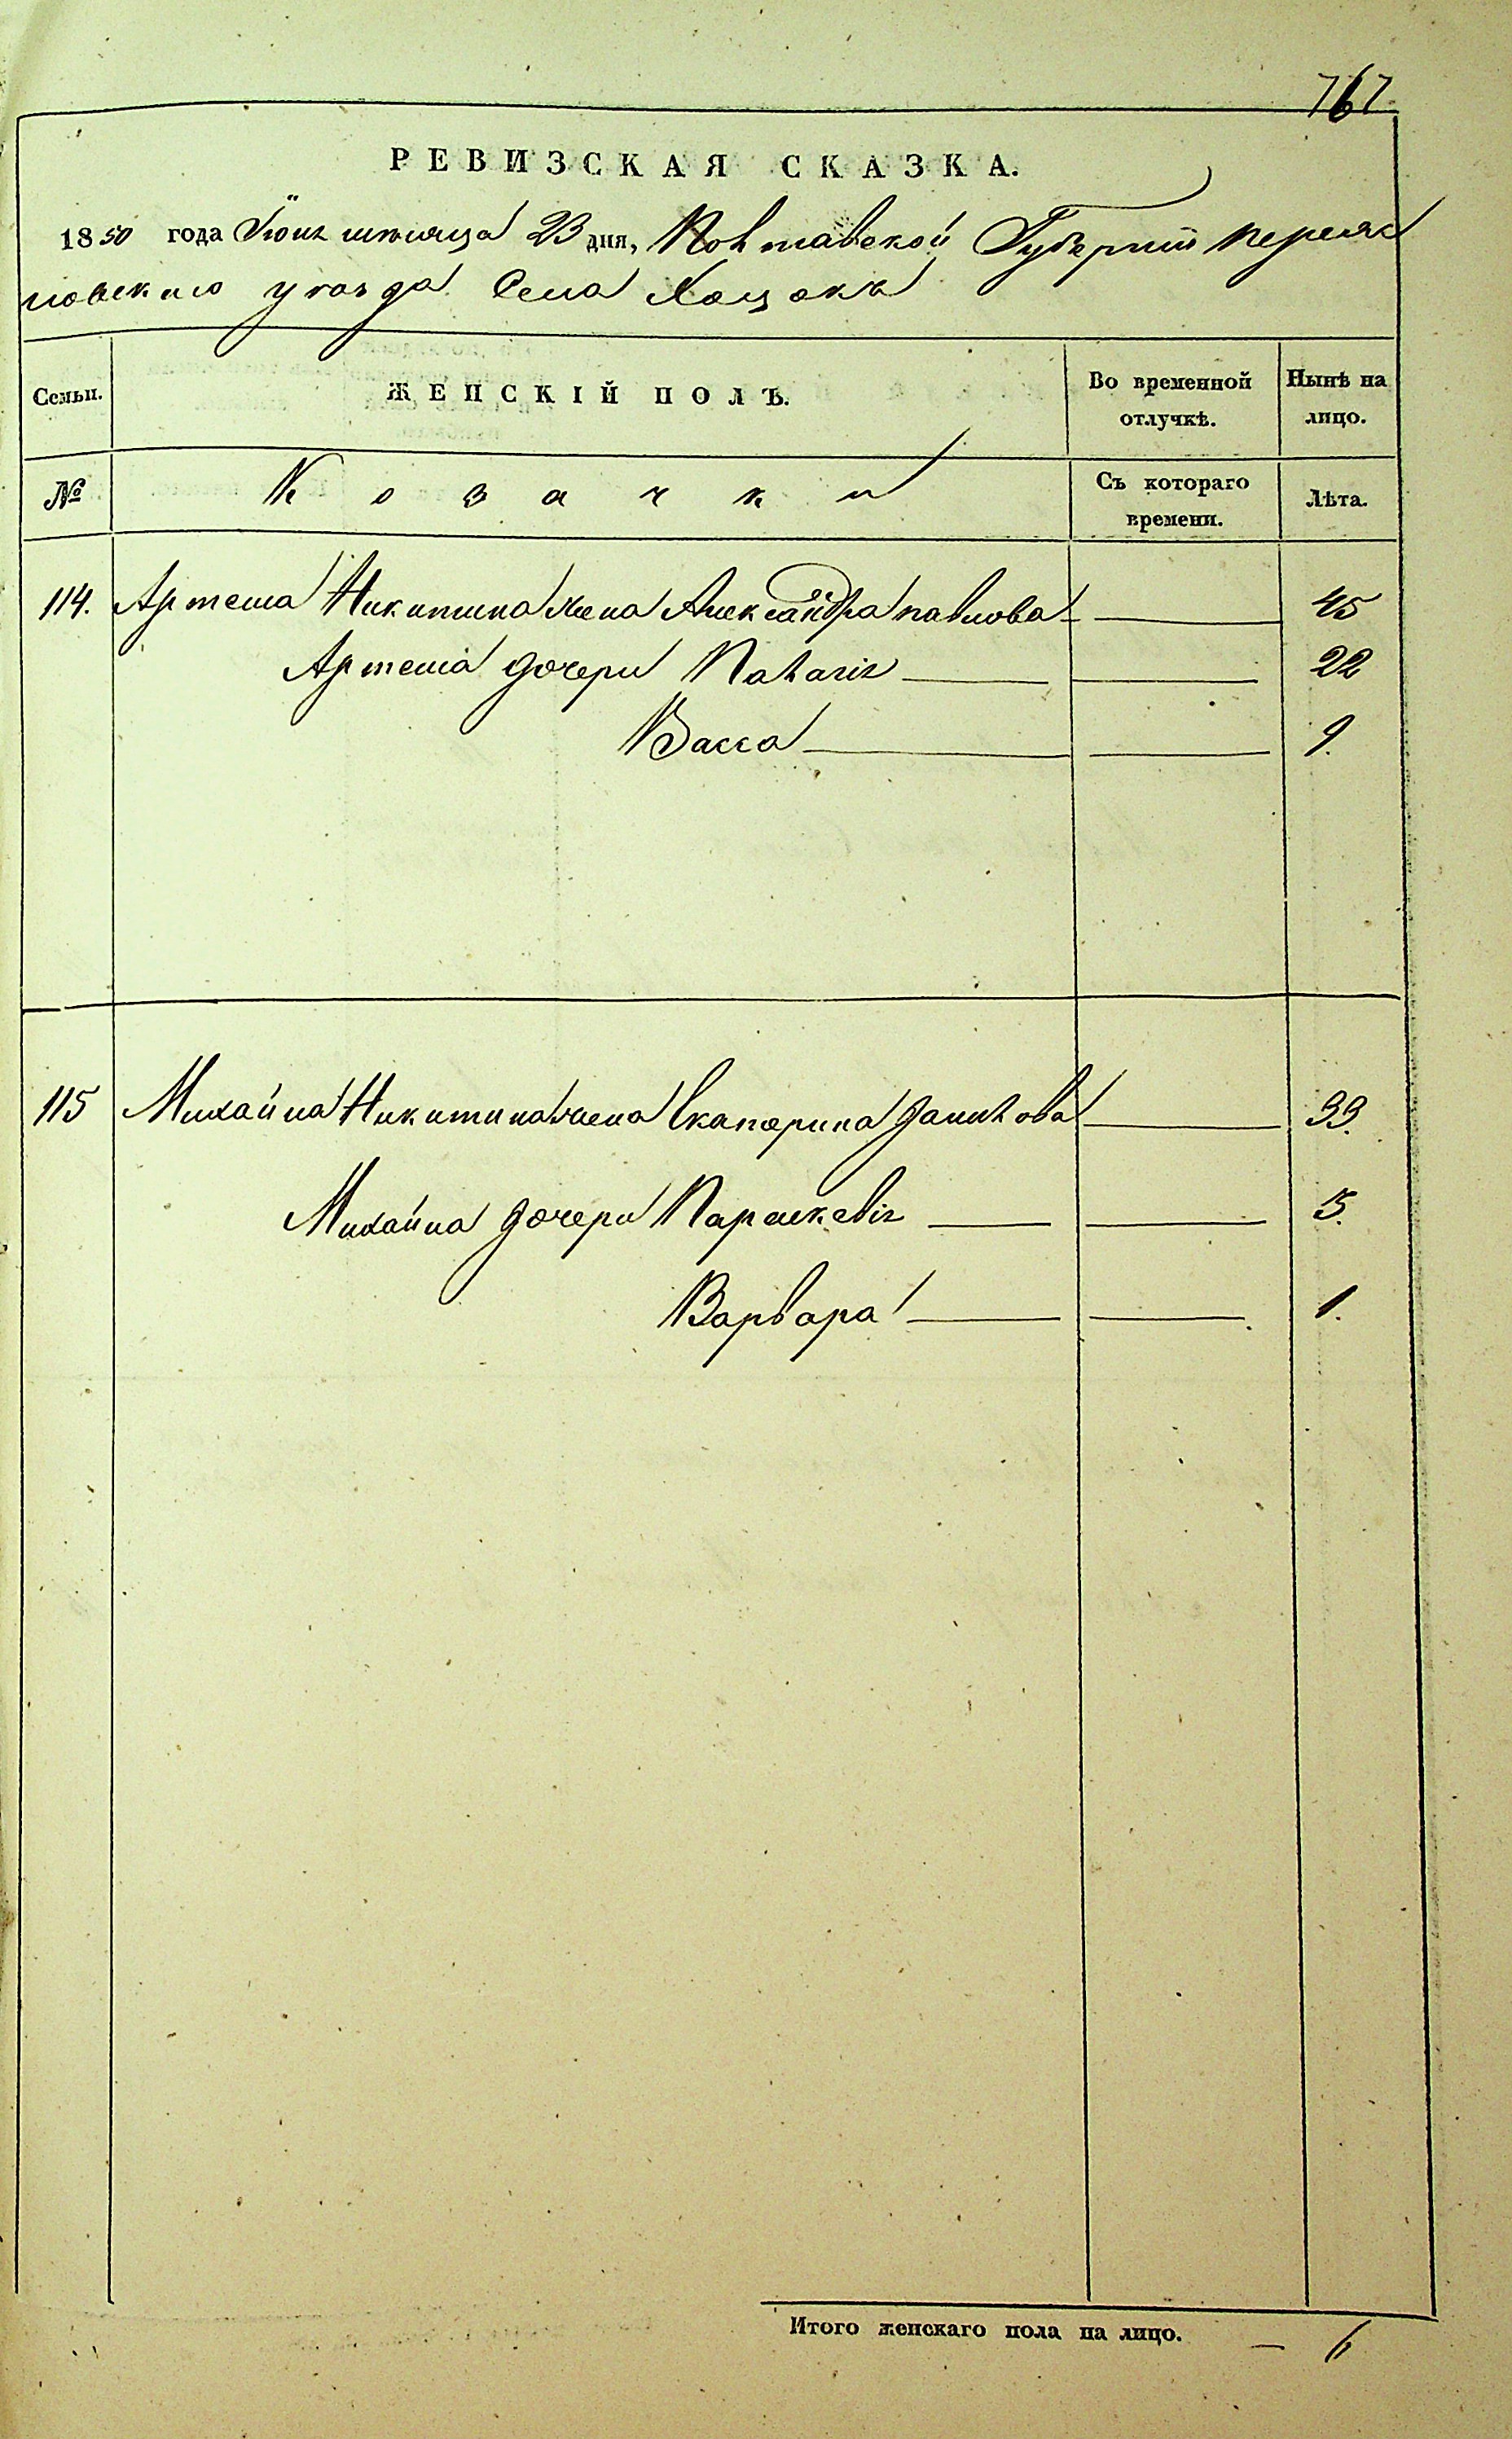 767
РЕВИЗСКАЯ СКАЗКА.
1850 года Іюня мѣсяца 23 дня, Полтавской Губерніи Переяс
ловскаго уезда Села Хоцокъ
Семьи. ЖЕНСКІЙ ПОЛЪ. Во временной отлучкѣ. Нынѣ на лицо.
№ Козачки Съ котораго времени. Лѣта.
114. Артема Никитина жена Александра павлова 45
Артема дочери Палагія 22
Васса 9.
115 Михайла Никитина жена Екатерина Данилова 33.
Михайла дочери Параскевія 5.
Варвара 1.
Итого женскаго пола на лицо. — 6